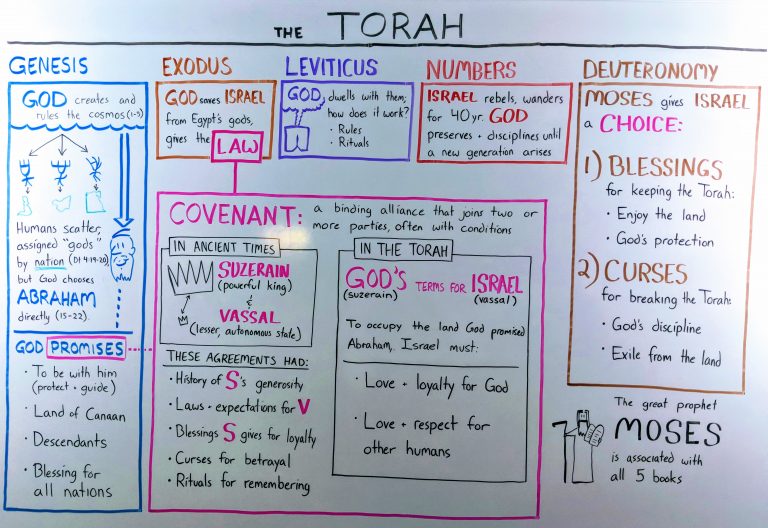 THE TORAH
GENESIS
GOD creates and
rules the cosmos (1-3)
Humans scatter,
assigned "gods"
by nation (Dt 4:19-20)
but God chooses
ABRAHAM
directly (15-22).
GOD PROMISES
• To be with him
(protect + guide)
• Land of Canaan
• Descendants
• Blessing for
all nations
EXODUS
GOD saves ISRAEL
from Egypt's gods,
gives the LAW
LEVITICUS
GOD dwells with them;
how does it work?
• Rules
• Rituals
NUMBERS
ISRAEL rebels, wanders
for 40 yr. GOD
preserves + disciplines until
a new generation arises
COVENANT: a binding alliance that joins two or
more parties, often with conditions
IN ANCIENT TIMES
SUZERAIN
(powerful king)
&
VASSAL
(lesser, autonomous state)
THESE AGREEMENTS HAD:
• History of S's generosity
• Laws + expectations for V
• Blessings S gives for loyalty
• Curses for betrayal
• Rituals for remembering
IN THE TORAH
GOD'S TERMS FOR ISRAEL
(suzerain) (vassal)
To occupy the land God promised
Abraham, Israel must:
• Love + loyalty for God
• Love + respect for
other humans
DEUTERONOMY
MOSES gives ISRAEL
a CHOICE:
1) BLESSINGS
for keeping the Torah:
• Enjoy the land
• God's protection
2) CURSES
for breaking the Torah:
• God's discipline
• Exile from the land
The great prophet
MOSES
is associated with
all 5 books